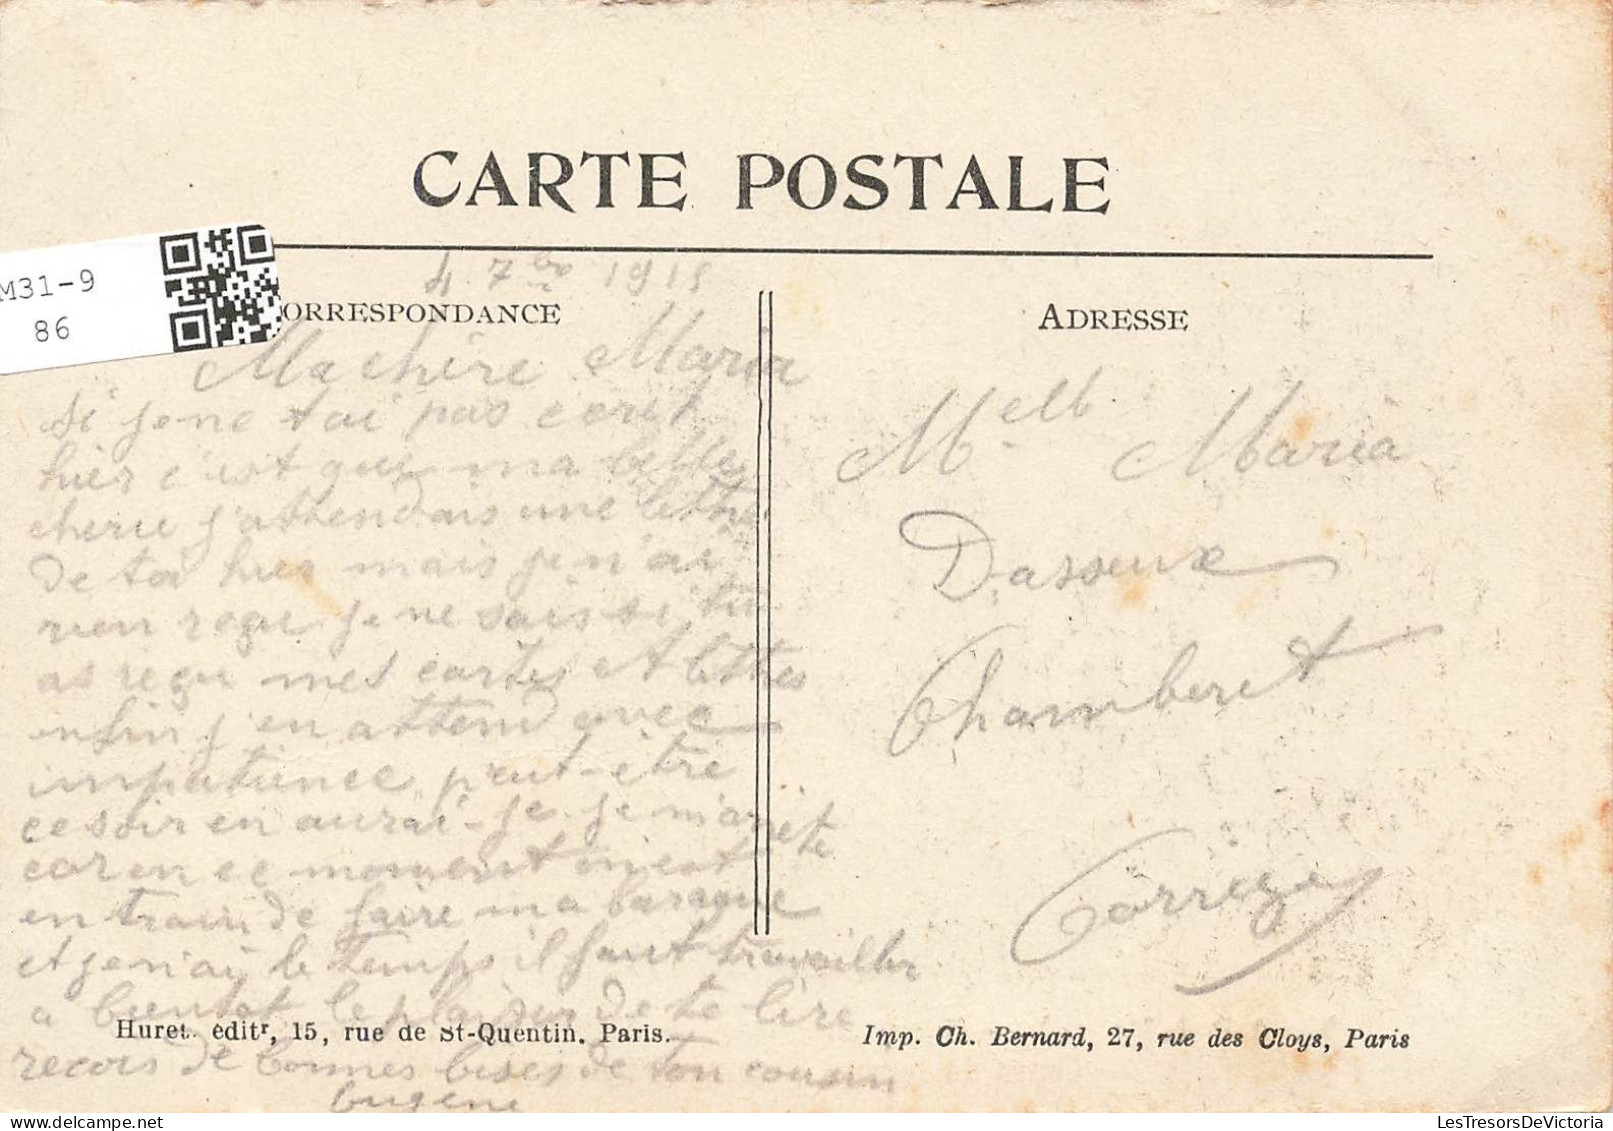 CARTE POSTALE
M31-9
86
4 7bre 1915
ORRESPONDANCE
ADRESSE
Ma chère Maria
si je ne tai pas ecrit
hier c'est que ma belle
cherie j'attendais une lettre
de toi hier mais je n'ai
rien reçu je ne sais si tu
as reçu mes cartes et lettres
enfin j'en attend avec
impatience peut-etre
ce soir en aurai-je je m'arrete
car en ce moment on est
en train de faire ma baraque
et je n'ai le temps il faut travailler
a bientot le plaisir de te lire
recois de bonnes bises de ton cousin
Eugene
Melle Maria
Dasseux
Chamberet
Corrèze
Huret, editr, 15, rue de St-Quentin, Paris.
Imp. Ch. Bernard, 27, rue des Cloys, Paris
LesTresorsDeVictoria